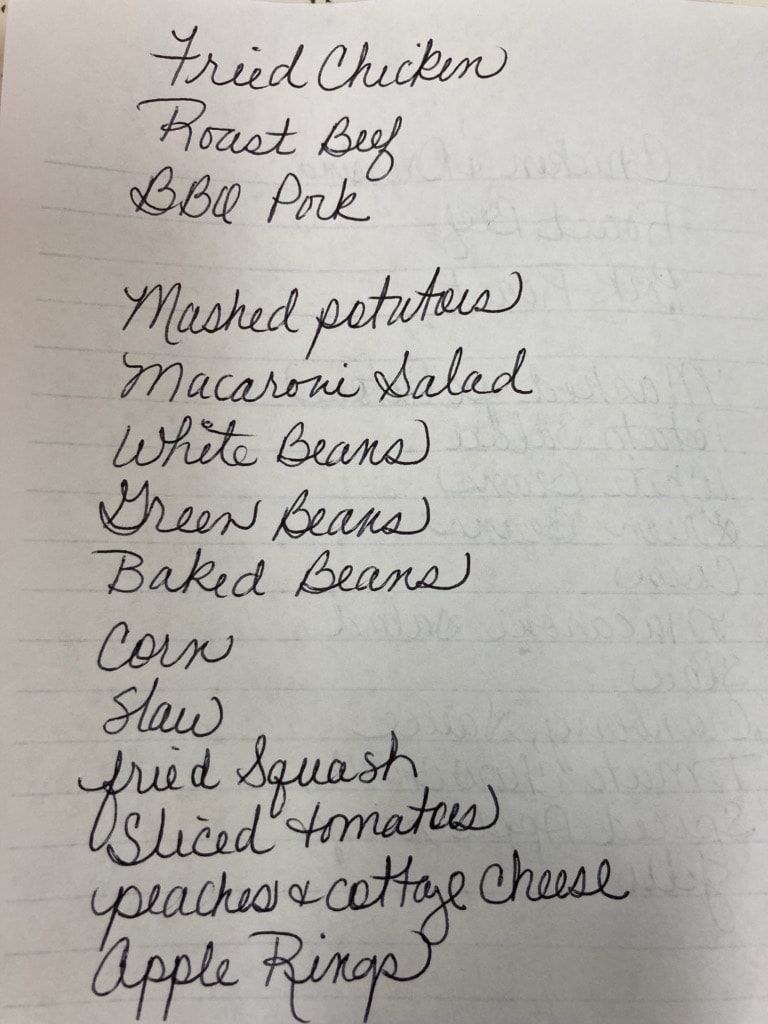 Fried Chicken
Roast Beef
BBQ Pork
Mashed potatoes
Macaroni Salad
White Beans
Green Beans
Baked Beans
Corn
Slaw
fried Squash
Sliced tomatoes
peaches & cottage cheese
Apple Rings